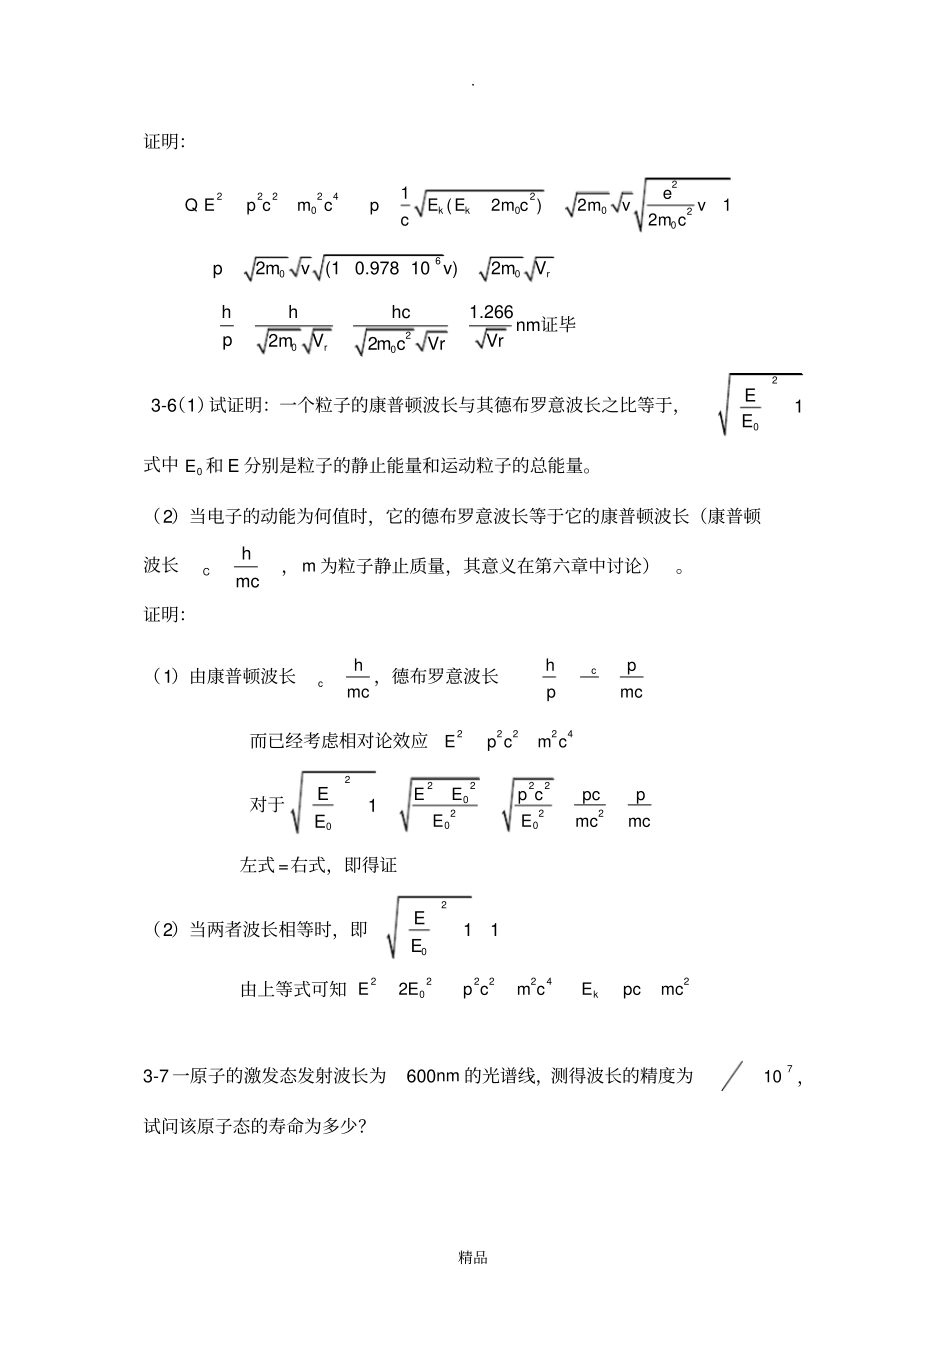 .
证明：
Q E² p²c² m₀²c⁴ p 1/c √(E_k(E_k 2m₀c²)) √(2m₀) √v √(e²/(2m₀c²) v 1)
p √(2m₀) √v √((1 0.978 10 ⁶v)) √(2m₀) √(V_r)
h/p h/(√(2m₀) √(V_r)) hc/(√(2m₀c²) √(Vr)) 1.266/√(Vr) nm证毕
3-6（1）试证明：一个粒子的康普顿波长与其德布罗意波长之比等于， √(E/E₀ ² 1)
式中 E₀ 和 E 分别是粒子的静止能量和运动粒子的总能量。
（2）当电子的动能为何值时，它的德布罗意波长等于它的康普顿波长（康普顿
波长 c h/mc ，m 为粒子静止质量，其意义在第六章中讨论） 。
证明：
（1）由康普顿波长 c h/mc ，德布罗意波长 h/p c p/mc
而已经考虑相对论效应 E² p²c² m²c⁴
对于 √(E/E₀ ² 1) √(E² E₀²/E₀²) √(p²c²/E₀²) pc/mc² p/mc
左式=右式，即得证
（2）当两者波长相等时，即 √(E/E₀ ² 1) 1
由上等式可知 E² 2E₀² p²c² m²c⁴ E_k pc mc²
3-7 一原子的激发态发射波长为 600nm 的光谱线，测得波长的精度为 / 10 ⁷，
试问该原子态的寿命为多少？
精品